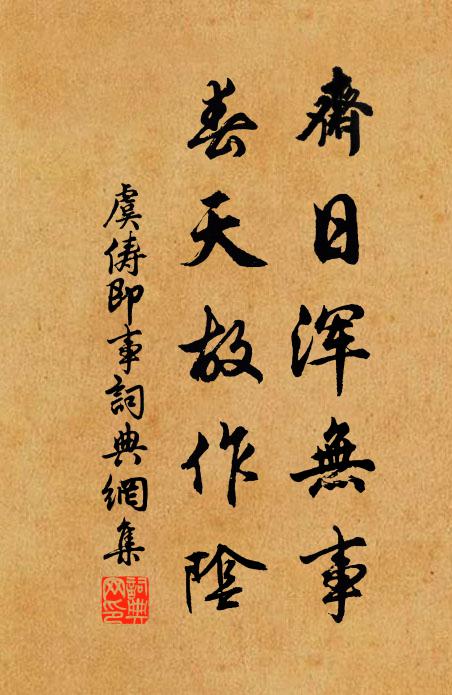 齋日浑無事
春天故作陰
虞俦即事詞典網集
詞典网印